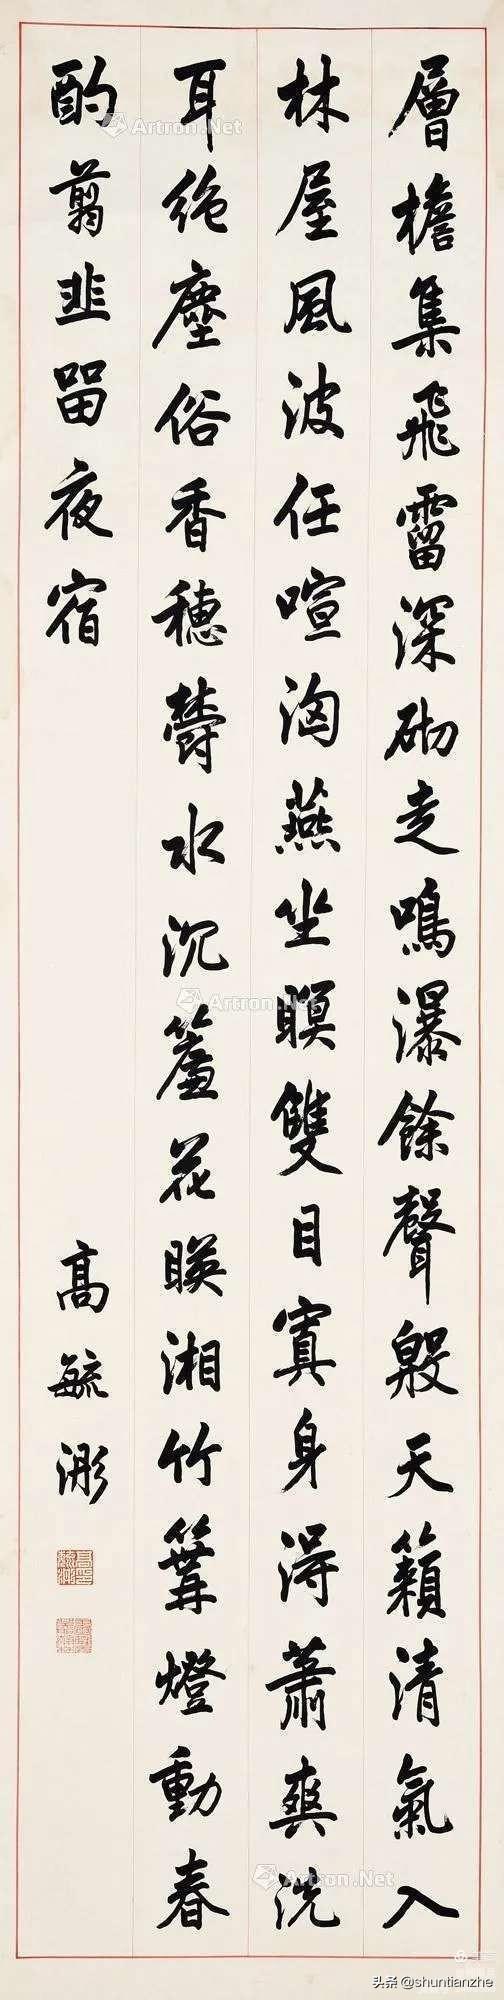 層檐集飛霤深砌走鳴瀑餘聲殷天籟清氣入
林屋風波任喧洶燕坐瞑雙目寘身得蕭爽洗
耳絶塵俗香穗欝水沉簾花暎湘竹篝燈動春
酌翦韭留夜宿
高毓浵
Artron.Net
Artron.Net
Artron.Net
头条 @shuntianzhe